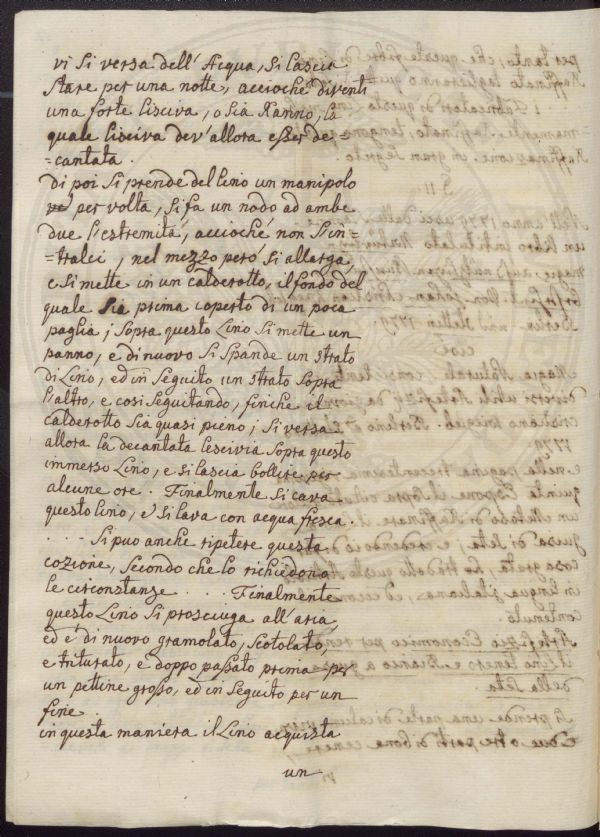 vi si versa dell' Acqua, si lascia
stare per una notte, accioché diventi
una forte lisciva, o sia Ranno, la
quale lisciva dev' allora esser de=
=cantata.
di poi si prende del lino un manipolo
per volta, si fa un nodo ad ambe
due l'estremità, accioché non s'in=
=tralci, nel mezzo però si allarga,
e si mette in un calderotto, il fondo del
quale sia prima coperto di un poca
paglia; sopra questo Lino si mette un
panno, e di nuovo si spande un strato
di Lino, ed in seguito un strato sopra
l'altro, e così seguitando, finche il
calderotto sia quasi pieno; si versa
allora la decantata lescivia sopra questo
immerso Lino, e si lascia bollire per
alcune ore. Finalmente si cava
questo lino, e si lava con acqua fresca.
.... Si può anche ripetere questa
cozione, secondo che lo richiedono
le circonstanze .... Finalmente
questo Lino si prosciuga all'aria,
ed è di nuovo gramolato, scotolato,
e triturato, e doppo passato prima per
un pettine grosso, ed in seguito per un
fine.
in questa maniera il Lino acquista
un